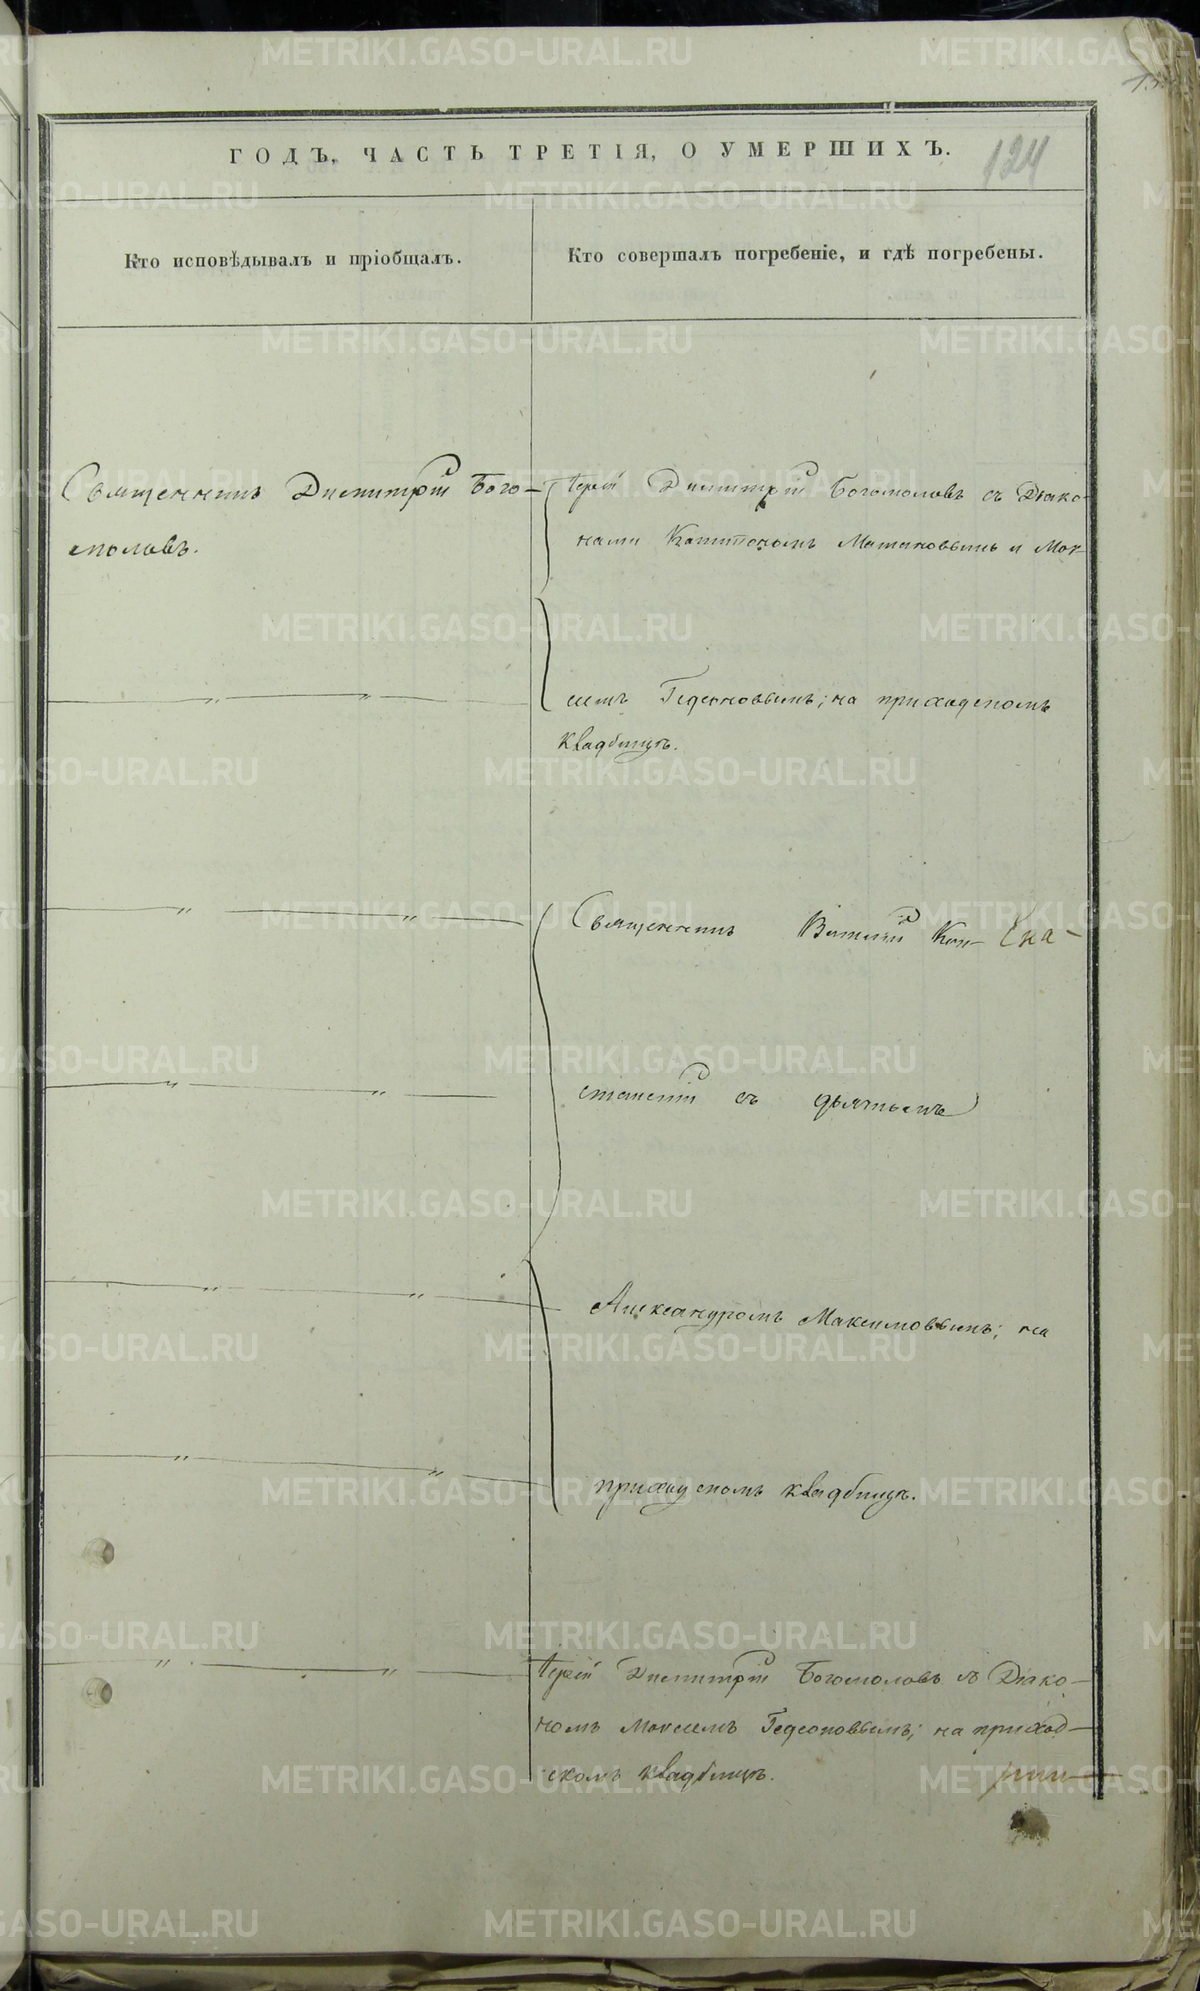 ГОДЪ, ЧАСТЬ ТРЕТІЯ, О УМЕРШИХЪ.
124
Кто исповѣдывалъ и пріобщалъ.
Кто совершалъ погребеніе, и гдѣ погребены.
Священникъ Димитрій Бого-
моловъ.
Іерей Димитрій Богомоловъ съ Діако-
нами Капитономъ и Мок-
еемъ Гедеоновымъ; на приходскомъ
кладбищѣ.
Священникъ Виталій Кон-
стансій съ дьячкомъ
Александромъ Максимовымъ; на
приходскомъ кладбищѣ.
Іерей Димитрій Богомоловъ съ Діако-
номъ Мокеемъ Гедеоновымъ; на приход-
скомъ кладбищѣ.
METRIKI.GASO-URAL.RU